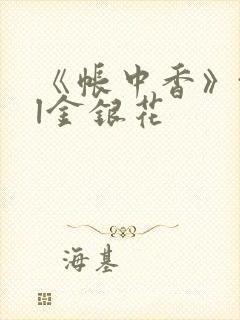 《帐中香》
l金银花
海基